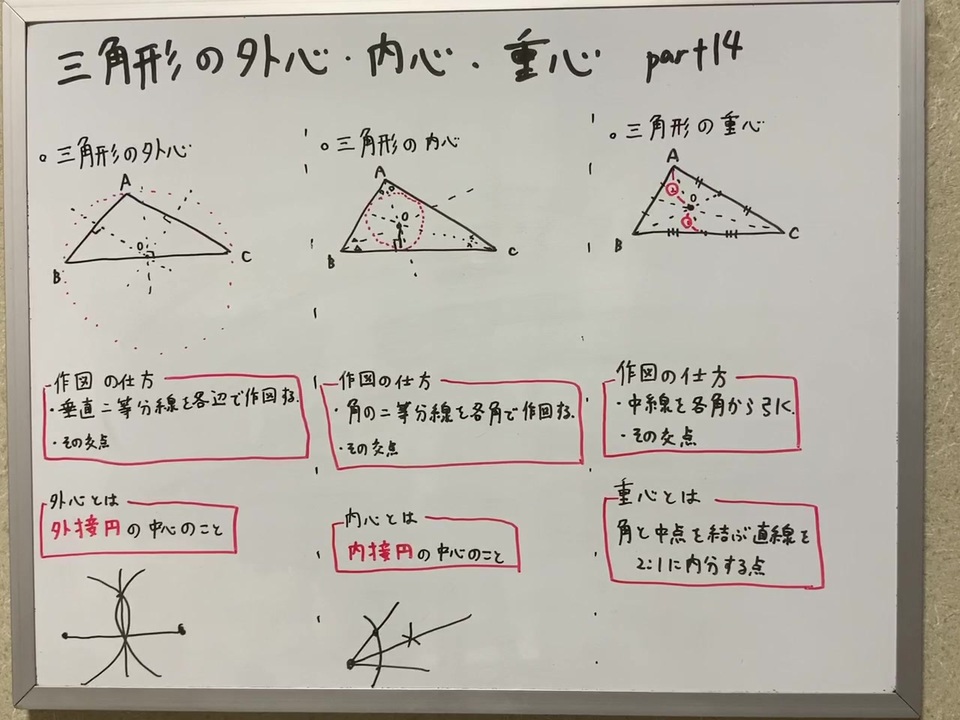 三角形の外心・内心・重心 part14
。三角形の外心
A
O
B
C
作図の仕方
・垂直二等分線を各辺で作図する.
・その交点
外心とは
外接円の中心のこと
。三角形の内心
A
O
B
C
作図の仕方
・角の二等分線を各角で作図する.
・その交点
内心とは
内接円の中心のこと
。三角形の重心
A
②
O
①
B
C
作図の仕方
・中線を各角から引く.
・その交点
重心とは
角と中点を結ぶ直線を
2:1に内分する点